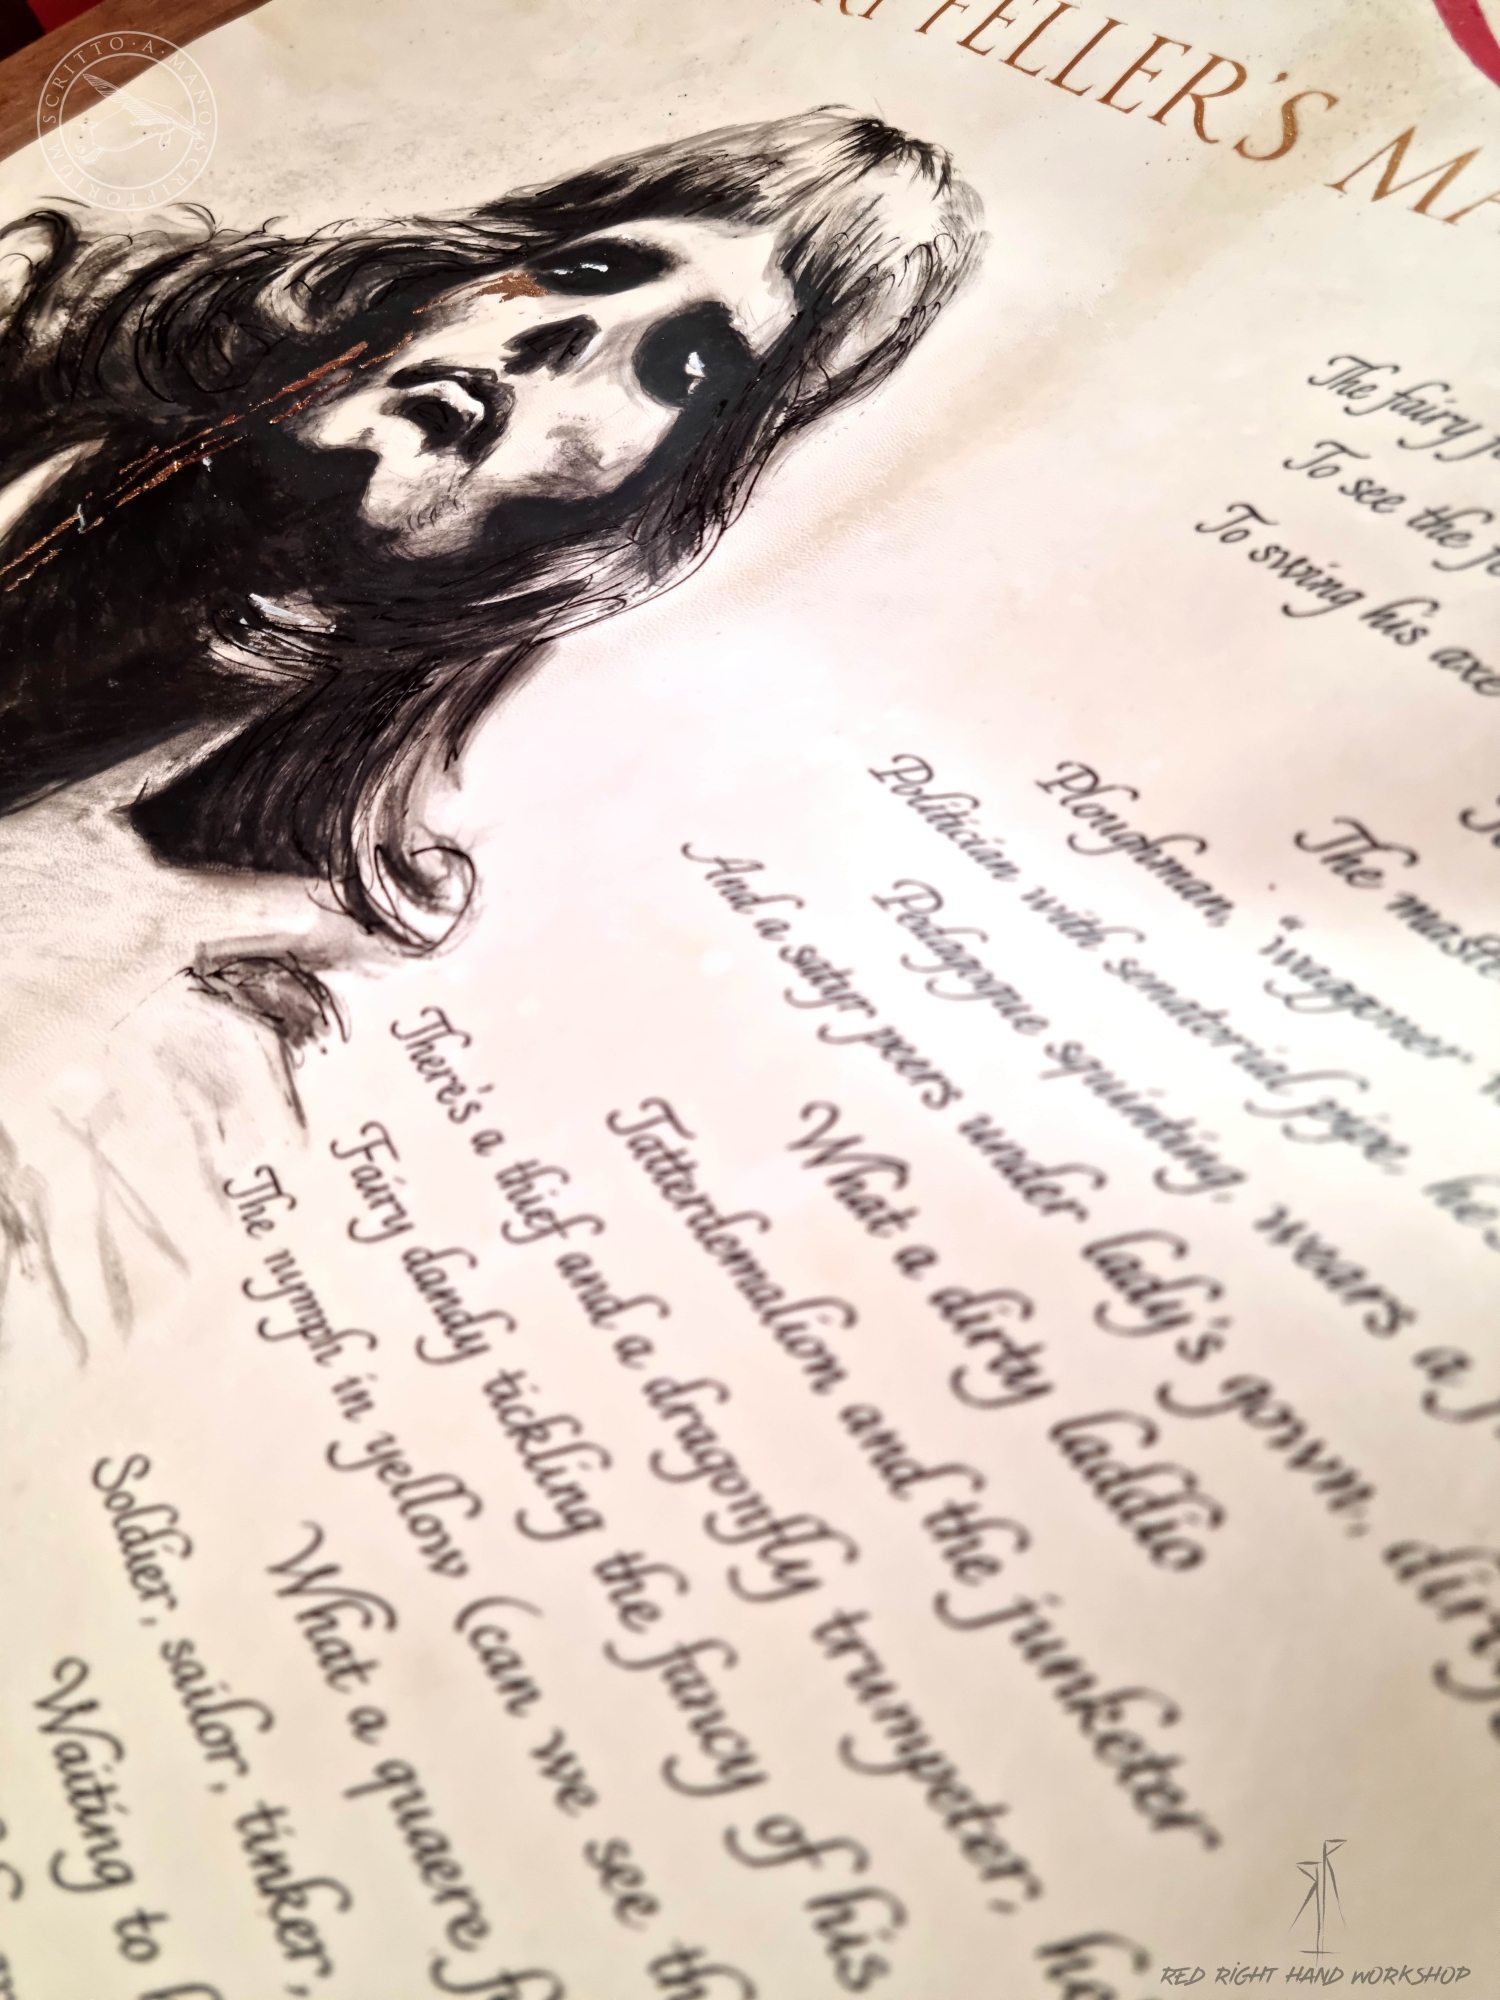 SCRITTO·A·MANO SCRIPTORIUM
FELLER'S MA
The fairy f
To see the
To swing his axe
The maste
Ploughman, "waggoner" w
Politician with senatorial pipe, he's
Pedagogue squinting, wears a f
And a satyr peers under lady's gown, dirty
What a dirty laddio
Tatterdemalion and the junketer
There's a thief and a dragonfly trumpeter, he
Fairy dandy tickling the fancy of his
The nymph in yellow (can we see th
What a quaere fe
Soldier, sailor, tinker,
Waiting to
RED RIGHT HAND WORKSHOP